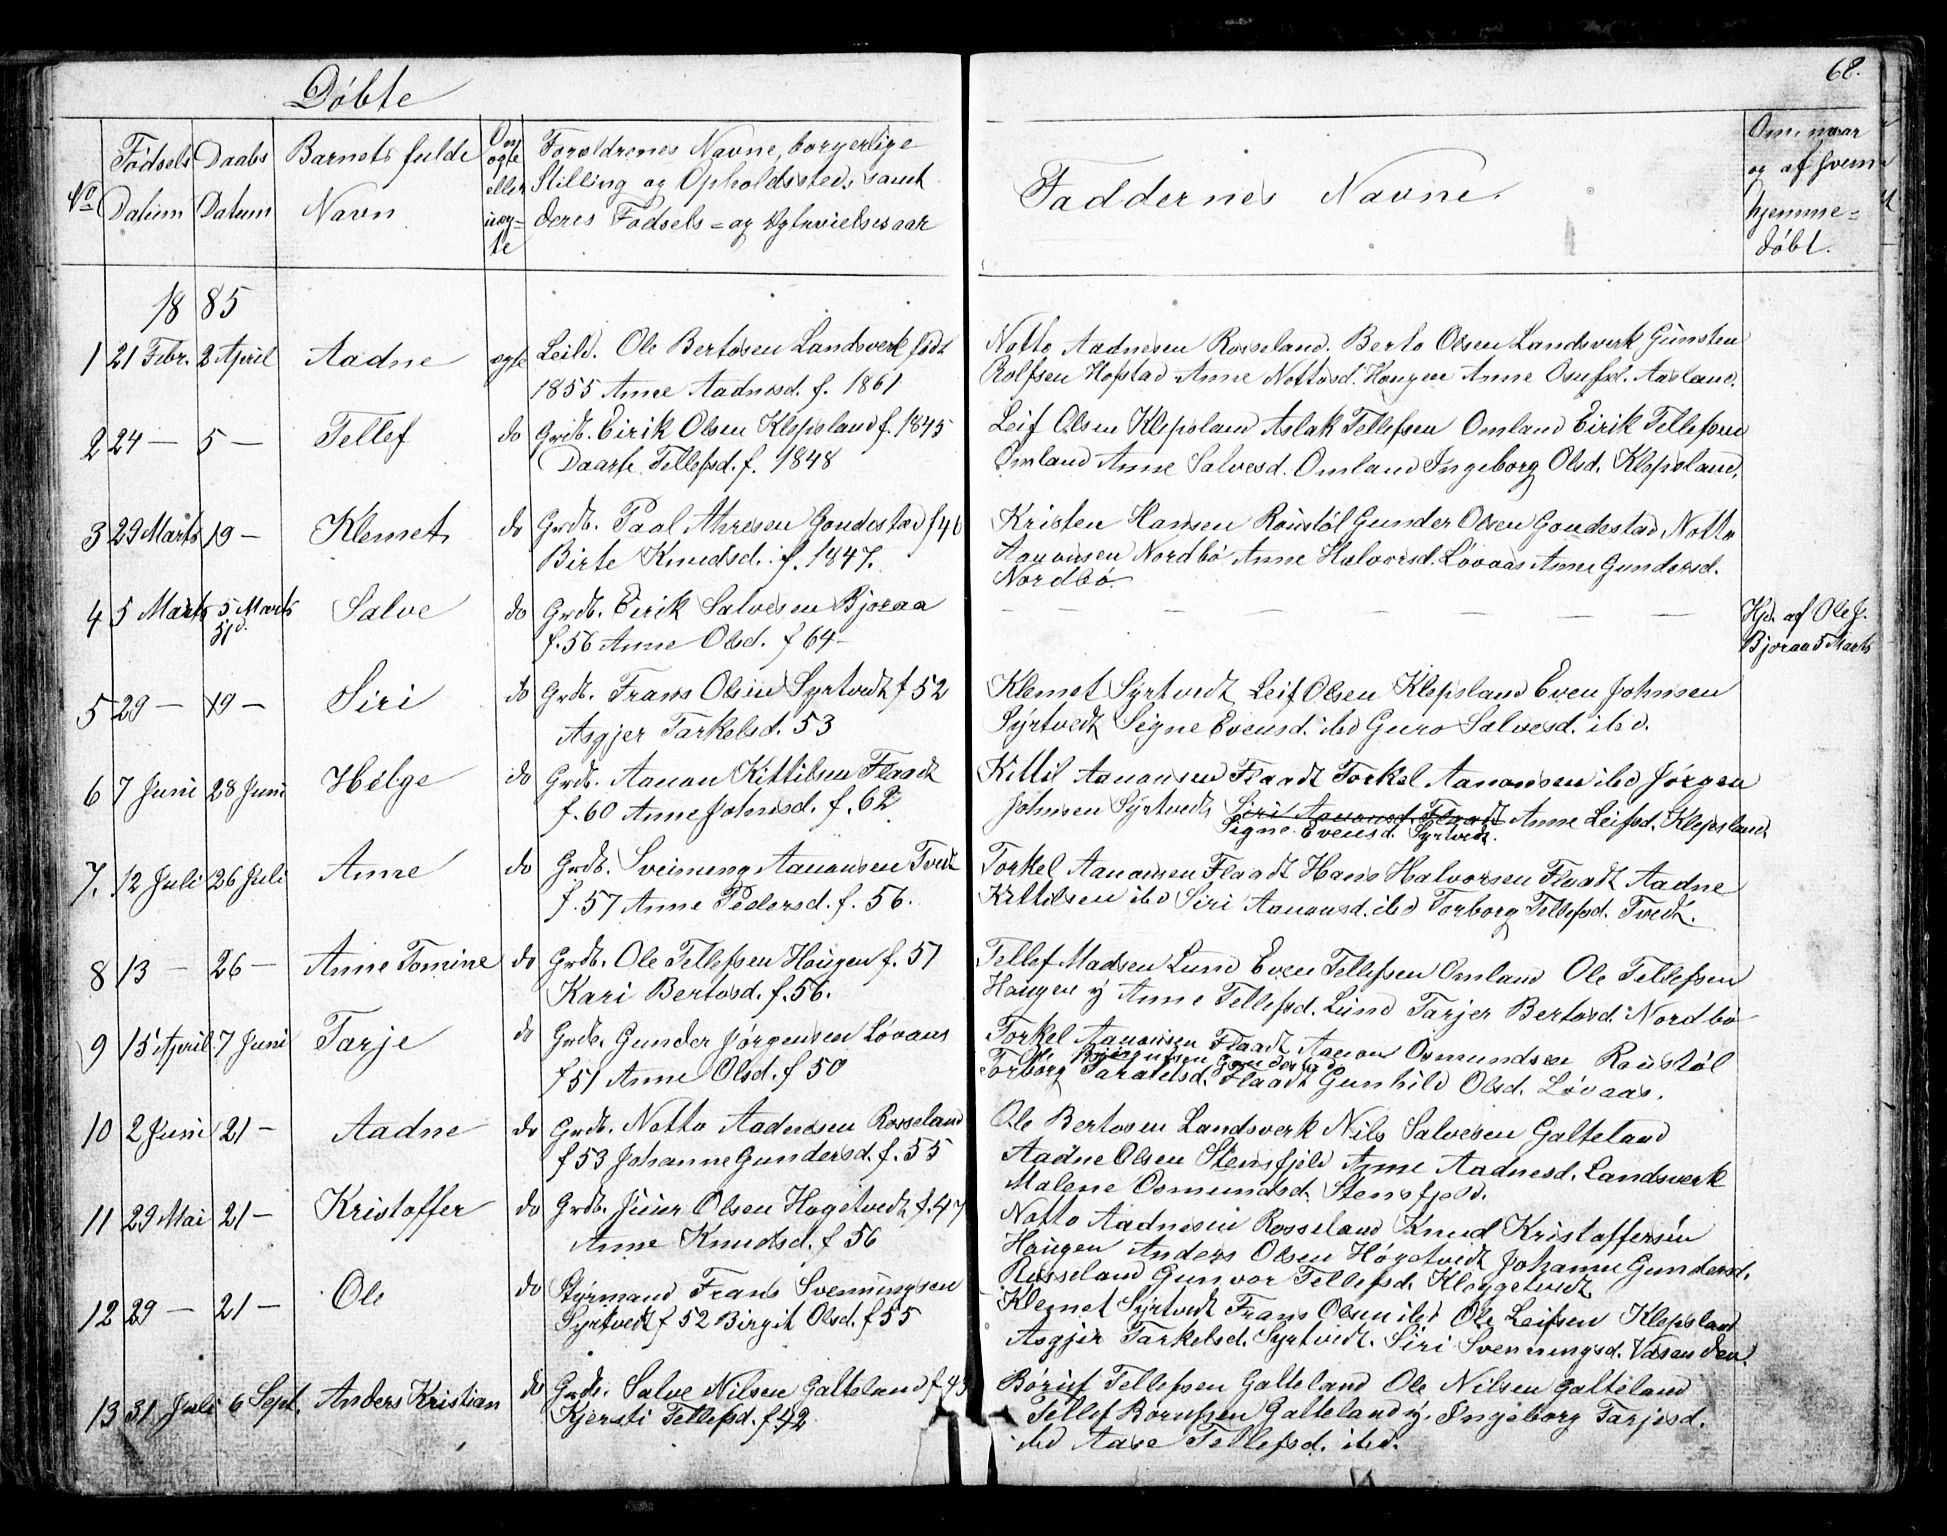 68.
Döbte
No
Födsels Datum
Daabs Datum
Barnets fulde Navn
Om ægte eller uæg=te
Forældrenes Navne, borgerlige
Stilling og Opholdssted, samt
deres Födsels= og Ægtevielsesaar
Faddernes Navne.
Om, naar
og af hvem
hjemme=
döbt.
1885
1 21 Febr. 2 April Aadne ægte Leild. Ole Bertosen Landsverk født
1855 Anne Aadnesd. f. 1861
Notto Aadnesen Rosseland. Berto Olsen Landsverk Gunsten
Rolfsen Hofstad Anne Nottosd. Hougen Anne Osufsd. Aasland.
2 24 — 5 — Tellef do Grdb. Eirik Olsen Klepsland f. 1845
Daarte Tellefsd. f. 1848
Leif Olsen Klepsland Aslak Tellefsen Omland Eirik Tellefsen
Omland Anne Salvesd. Omland Ingeborg Olsd. Klepsland.
3 29 Marts 19 — Klemet do Grdb. Paal Ahresen Goudestad f 46
Birte Knudsd. f. 1847.
Kristen Hansen Röustöl Gunder Olsen Goudestad Notto
Aanonsen Nordbö Anne Halvorsd. Lövaas Anne Gundersd.
Nordbö.
4 5 Marts 5 Marts Salve do Grdb. Eirik Salvesen Bjoraa
f. 56 Anne Olsd. f 64 —
— — — — — —
Hjd. af Ole J.
Bjoraa 5 Marts
5 29 — 19 — Siri do Grdb. Frans Olsen Syrtvedt f 52
Asgjer Tarkelsd. 53
Klemet Syrtvedt Leif Olsen Klepsland Even Johnsen
Syrtvedt Signe Evensd. ibd Guro Salvesd. ibd.
6 7 Juni 28 Juni Helge do Grdb. Aanon Kittilsen Flaadt
f. 60 Anne Johnsd. f. 62
Kittil Aanonsen Flaadt Torkel Aanonsen ibd Jörgen
Johnsen Syrtvedt Siri Aanonsd. Flaadt Anne Leifsd. Klepsland
Signe Evensd. Syrtvedt.
7. 12 Juli 26 Juli Anne do Grdb. Sveinung Aanonsen Tvedt
f. 57 Anne Pedersd. f. 56.
Torkel Aanonsen Flaadt Hans Halvorsen Flaadt Aadne
Kittilsen ibd Siri Aanonsd. ibd Torborg Tellefsd. Tvedt.
8 13 — 26 — Anne Tomine do Grdb. Ole Tellefsen Hougen f. 57
Kari Bertosd. f. 56.
Tellef Madsen Lund Even Tellefsen Omland Ole Tellefsen
Hougen y Anne Tellefsd. Lund Tarjer Bertosd. Nordbö
9 15 April 7 Juni Tarje do Grdb. Gunder Jörgensen Lövaas
f 51 Anne Olsd. f 50
Torkel Aanonsen Flaadt Aanon Osmundsen Roustöl
Torborg Taraldsd. Flaadt Gunhild Olsd. Lövaas.
10 2 Juni 21 — Aadne do Grdb. Notto Aadnesen Rosseland
f 53 Johanne Gundersd. f. 55
Ole Bertosen Landsverk Nils Salvesen Galteland
Aadne Olsen Stensfjeld Anne Aadnesd. Landsverk
Malene Osmundsd. Stensfjeld.
11 29 Mai 21 — Kristoffer do Grdb. Juur Olsen Hogetvedt f. 47
Anne Knudsd. f 56
Notto Aadnesen Rosseland Knud Kristoffersen
Hougen Anders Olsen Högetvedt Johanne Gundersd.
Rosseland Gunvor Tellefsd. Kloggetvedt
12 29 — 21 — Ole do Styrmand Frans Svenningsen
Syrtvedt f 52 Birgit Olsd. f 55
Klemet Syrtvedt Frans Olsen ibd Ole Leifsen Klepsland
Asgjer Tarkelsd. Syrtvedt. Siri Svenningsd. Vasenden.
13 31 Juli 6 Sept. Anders Kristian do Grdb. Salve Nilsen Galteland f 45
Kjersti Tellefsd. f 42
Böruf Tellefsen Galteland Ole Nilsen Galteland
Tellef Börufsen Galteland y. Ingeborg Tarjesd.
ibd Aase Tellefsd. ibd.